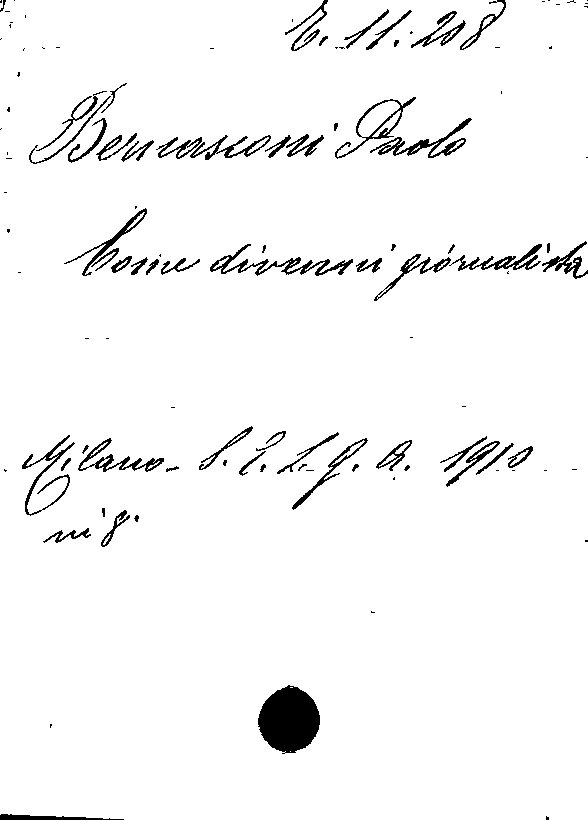 E. 11. 208
Bernasconi Paolo
Come divenni giornalista
Milano - S. E. L. G. A. 1910
in 8°